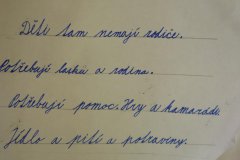 Děti tam nemají rodiče.
Potřebují lásku a rodina.
Potřebují pomoc. Hry a kamarádi.
Jídlo a pití a potraviny.